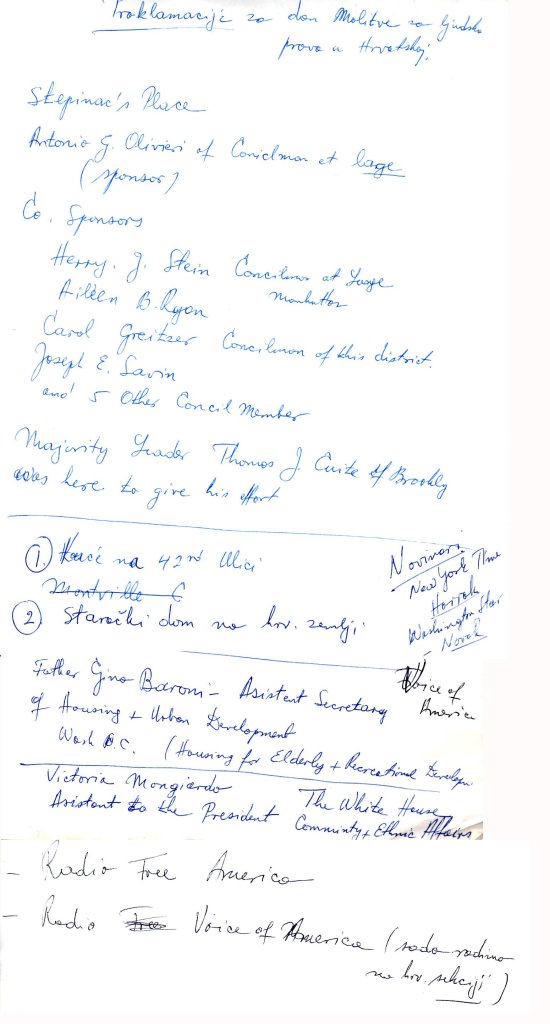 Proklamacije za dan Molitve za ljudska
prava u Hrvatskoj.
Stepinac's Place
Antonio G. Olivieri of Coniclman at lage
(sponsor)
Co. Sponsors
Herry. J. Stein Concilman at Large
Manhattan
Aileen B. Ryan
Carol Greitzer Concilman of this district.
Joseph E. Savin
and 5 Other Concil Member
Majority Leader Thomas J Cuite of Brookly
was here to give his effort
1. Kuće na 42nd Ulici
Montville C
2 Starački dom na hrv. zemlji
Novinari
New York Time
Washington Star
Novak
Voice of
America
Father Gino Baroni - Asistent Secretary
of Housing + Urban Development
Wash D.C. (Housing for Elderly + Recreational Developm
Victoria Mongiardo The White House
Asistant to the President Community + Ethnic Affairs
- Radio Free America
- Radio Free Voice of America (sada radimo
na hrv. sekciji)